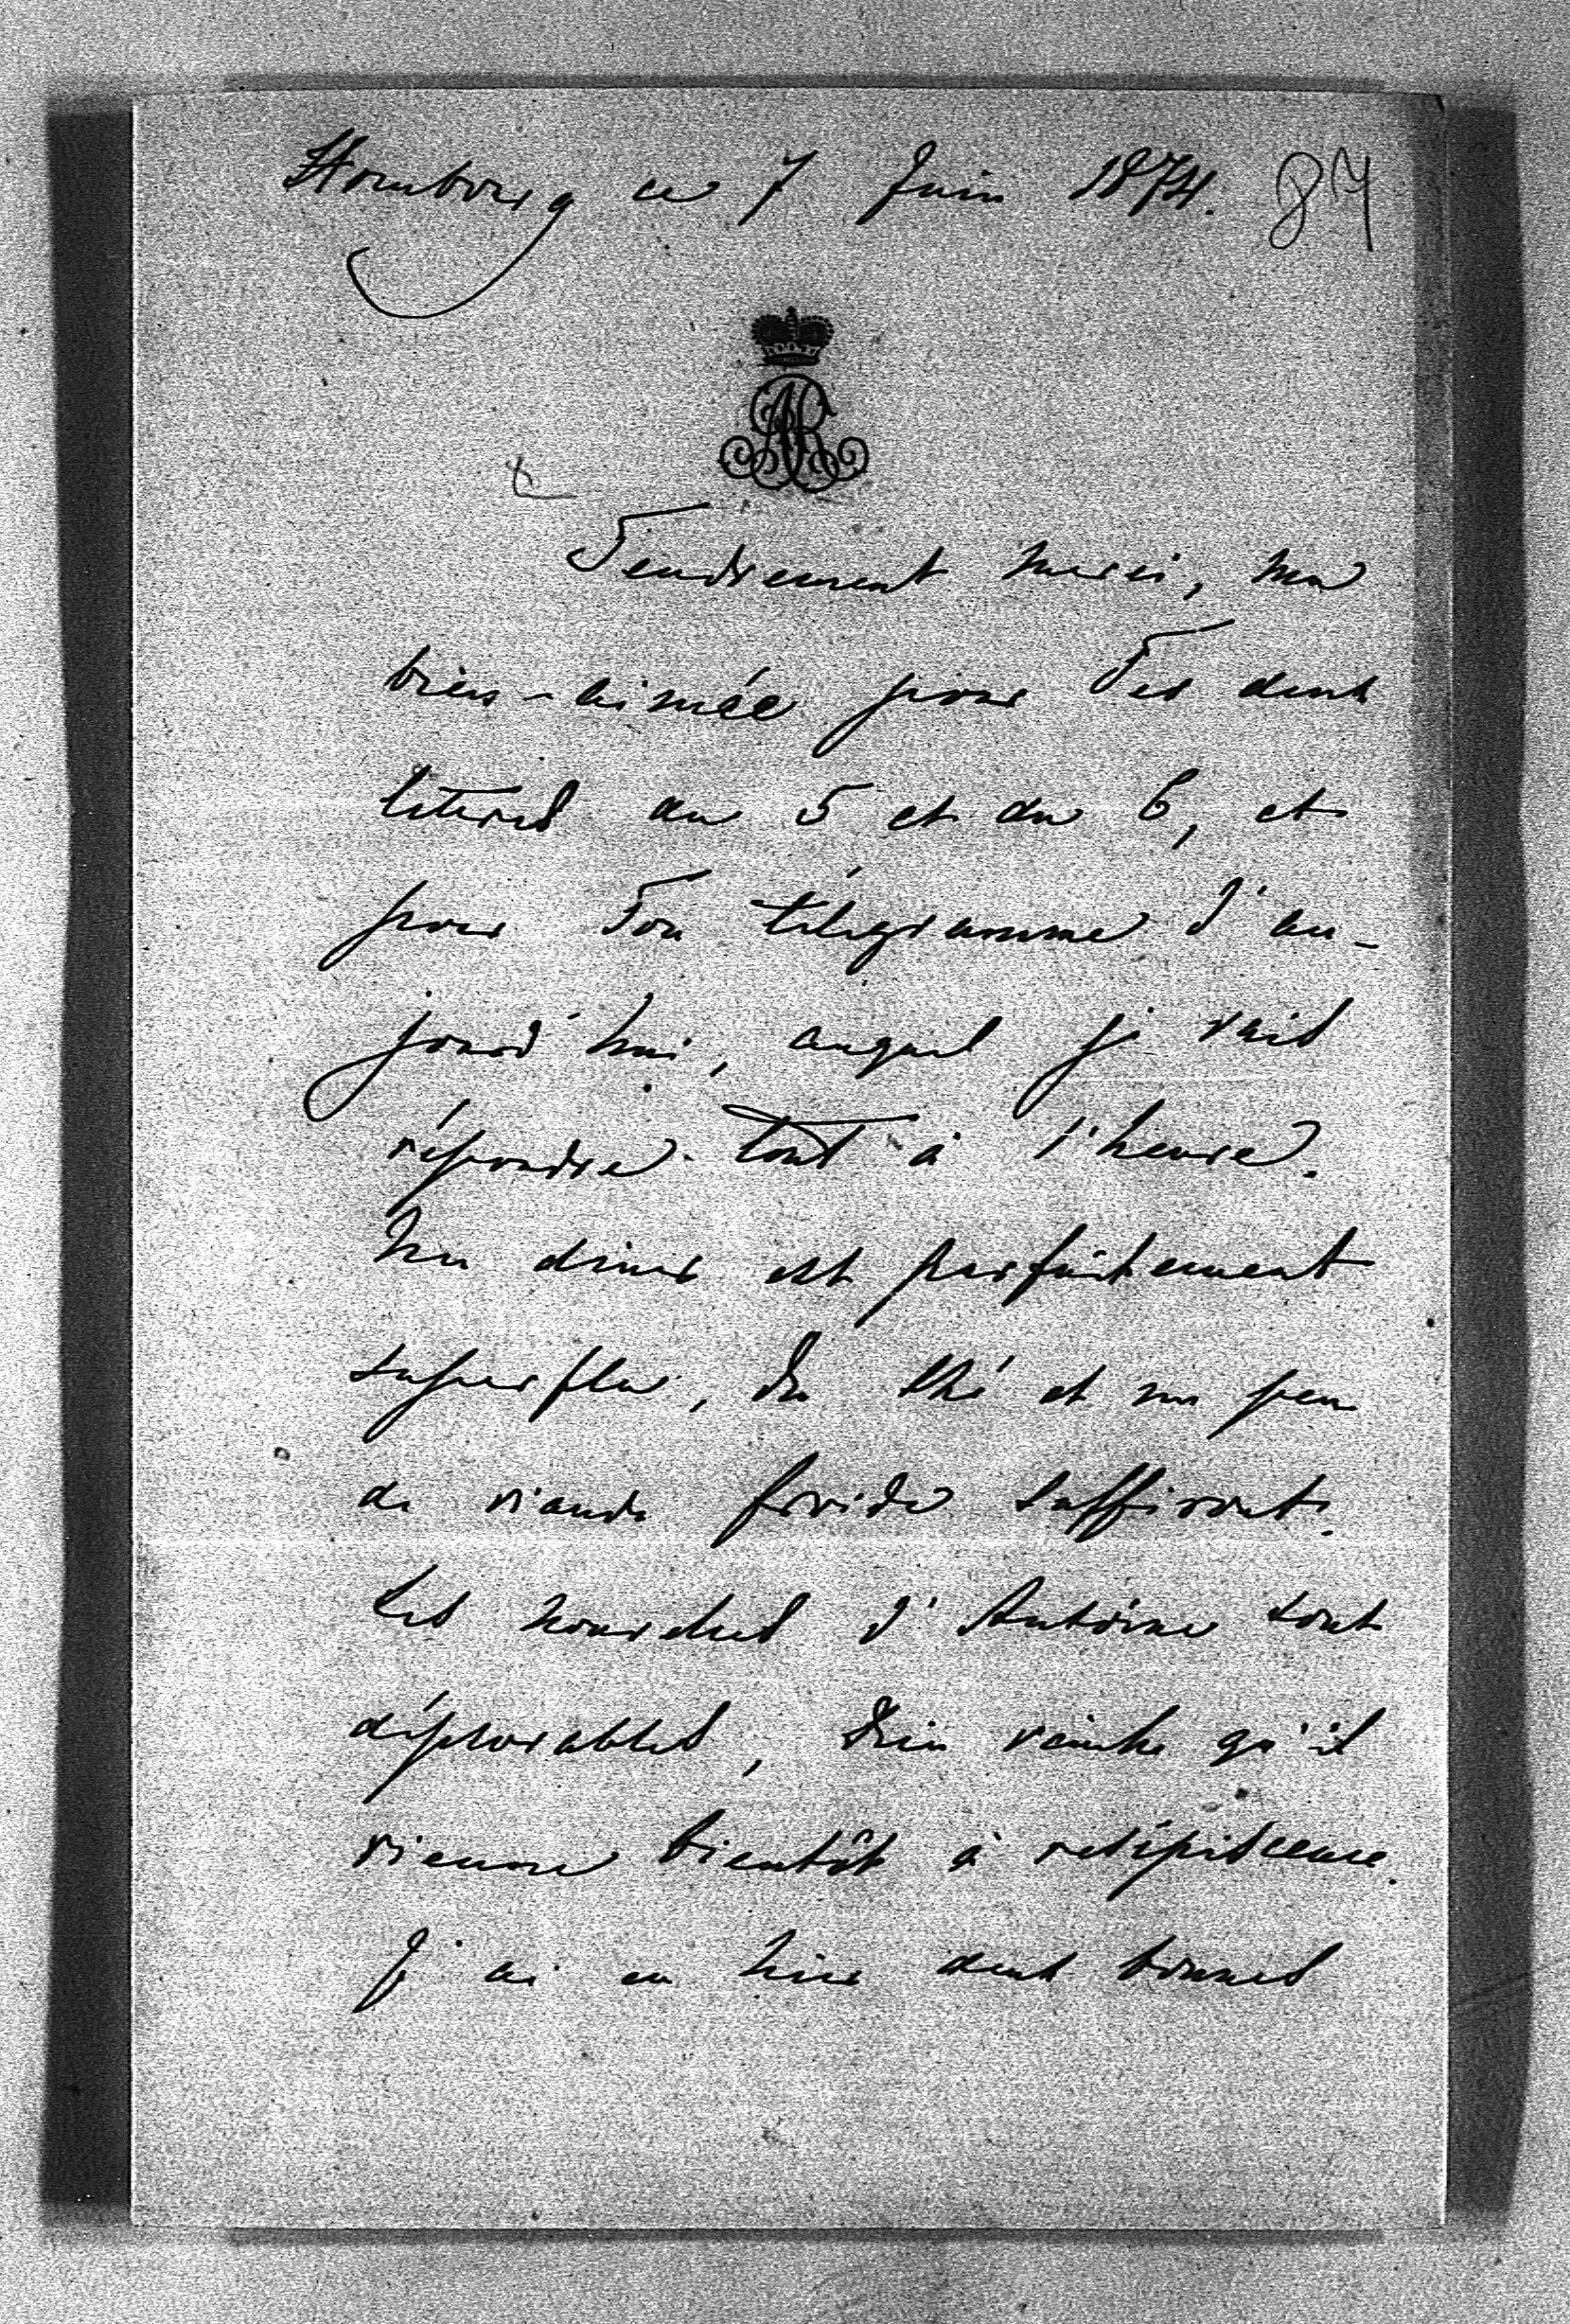 Hombourg ce 7 Juin 1874. 87
AR
Tendrement merci, ma
bien-aimée pour Tes deux
lettres du 5 et du 6, et
pour Ton télégramme d'au-
jourd'hui, auquel je vais
répondre tout à l'heure.
Un diner est parfaitement
superflu, du thé et un peu
de viande froide suffiront.
Les nouvelles d'Antoine sont
déplorables, Dieu veuille qu'il
vienne bientôt à résipiscence.
J'ai eu hier deux bonnes